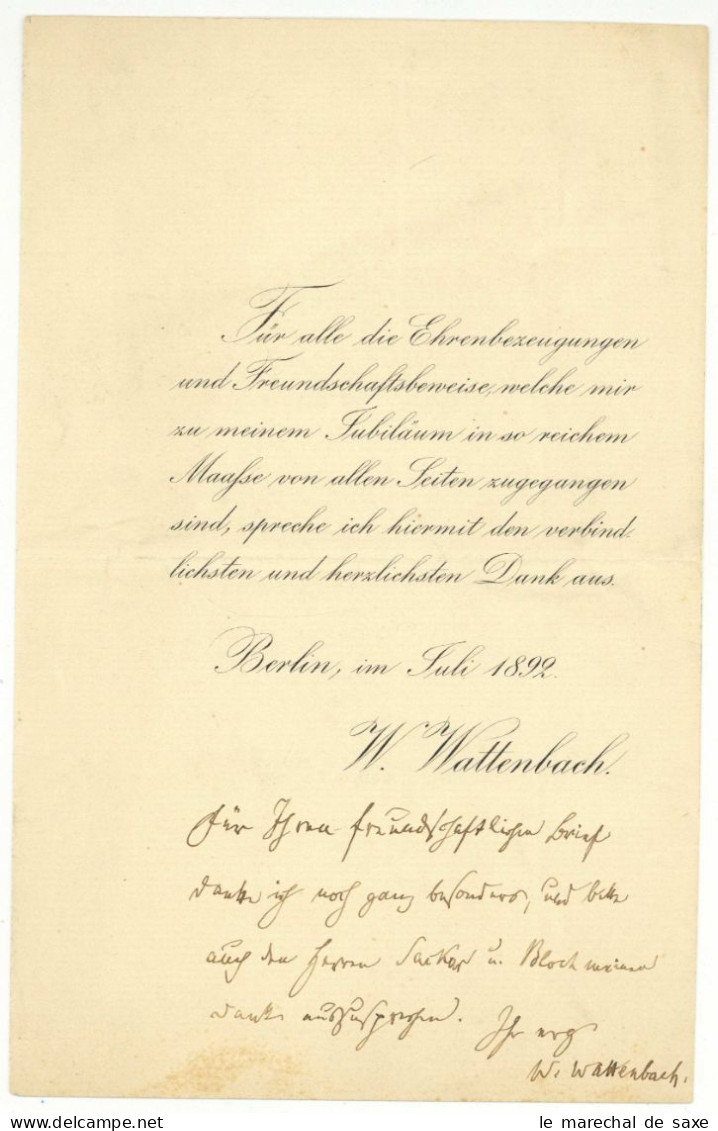 Für alle die Ehrenbezeugungen
und Freundschaftsbeweise, welche mir
zu meinem Jubiläum in so reichem
Maaſse von allen Seiten zugegangen
sind, spreche ich hiermit den verbind-
lichsten und herzlichsten Dank aus.
Berlin, im Juli 1892.
W. Wattenbach.
Für Ihren freundschaftlichen Brief
danke ich noch ganz besonders, und bitte
auch den Herren Sackur u. Bloch meinen
Dank auszusprechen.
Ihr erg
W. Wattenbach.
le marechal de saxe